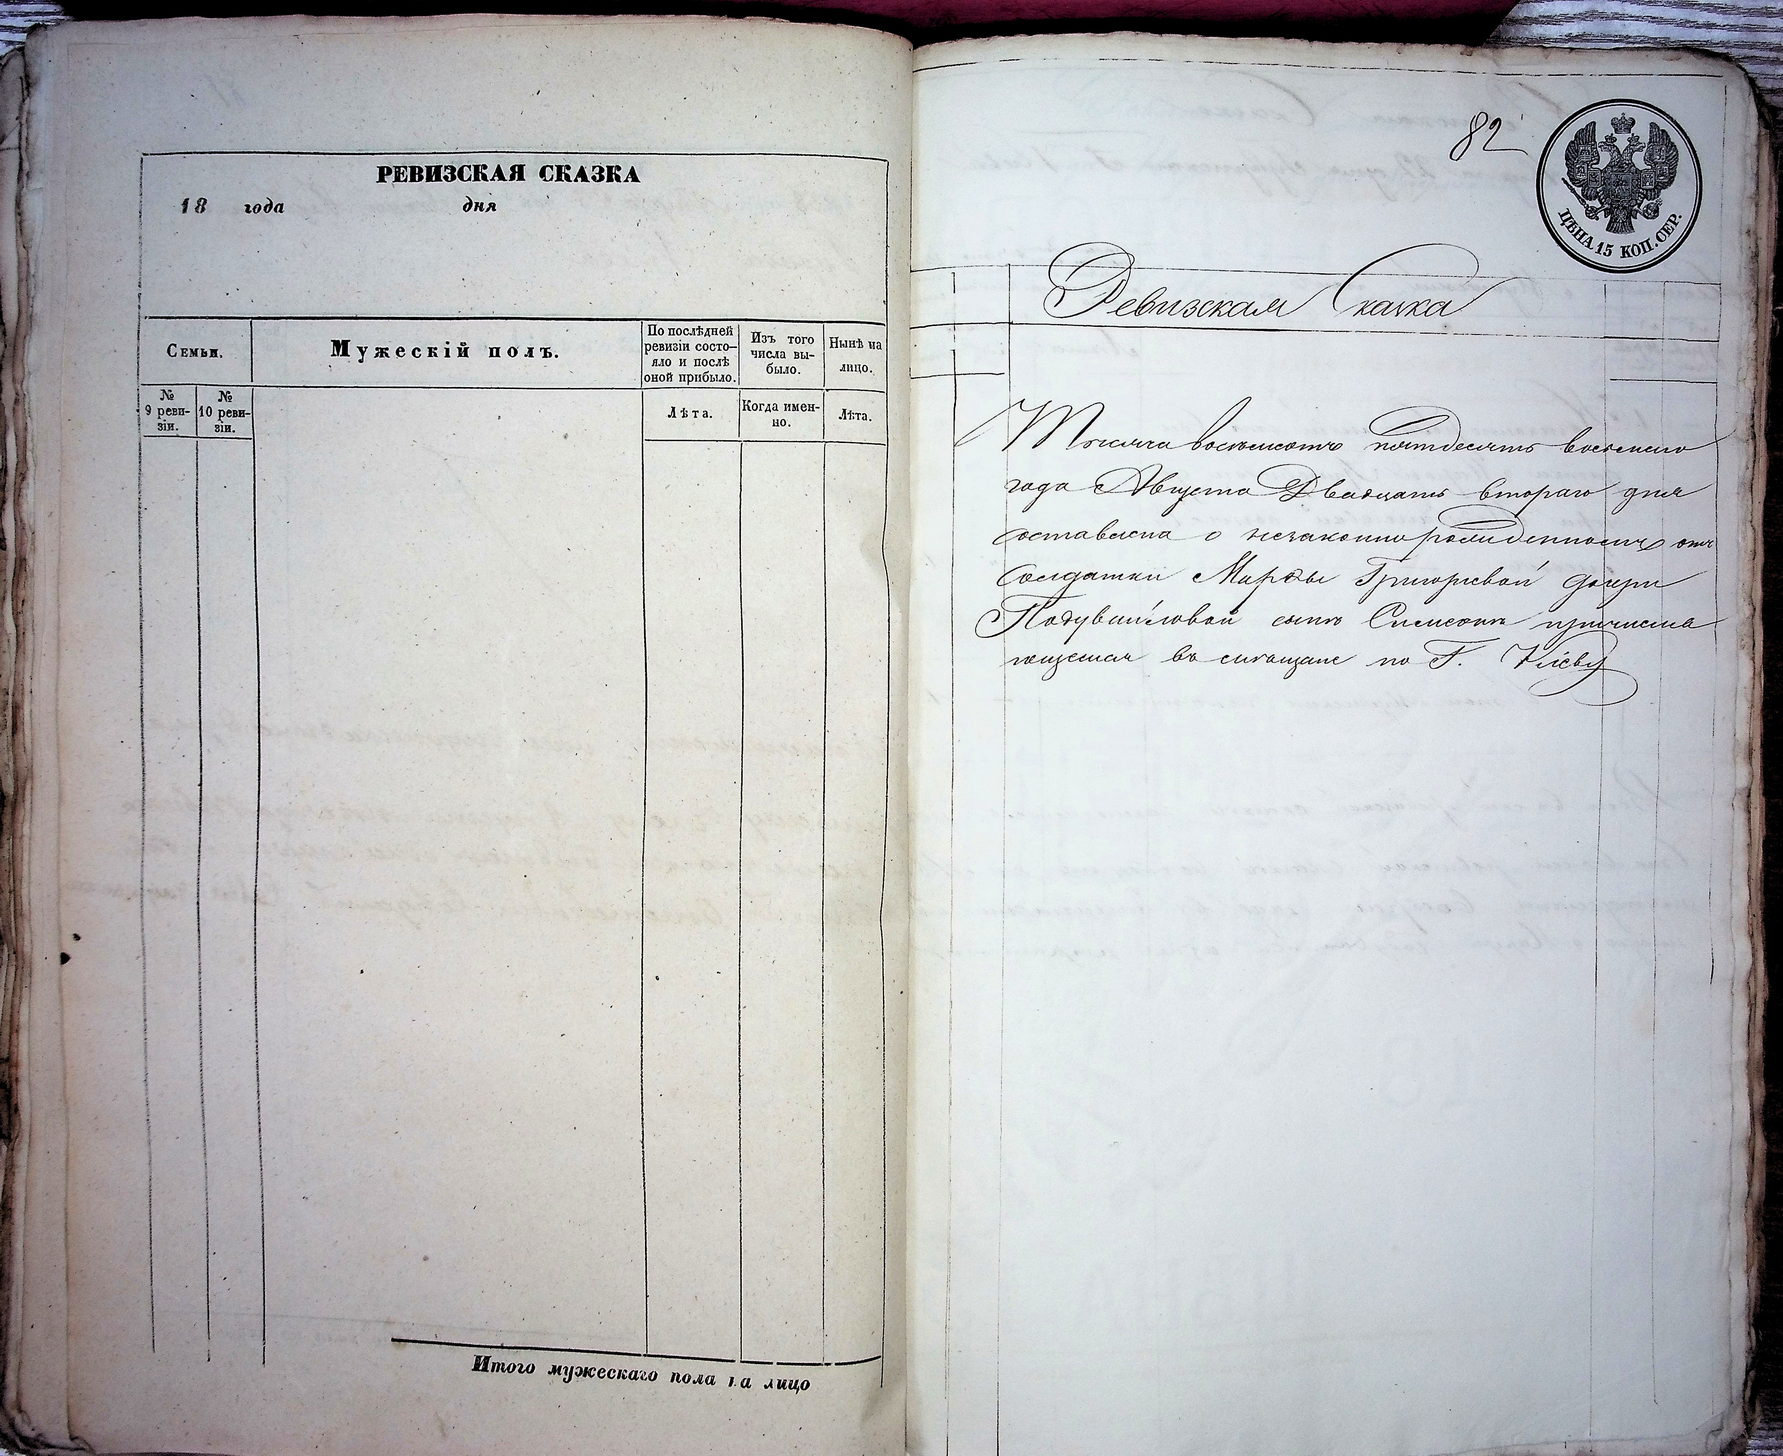 РЕВИЗСКАЯ СКАЗКА
18 года дня
Семьи.
Мужескій полъ.
По послѣдней
ревизіи состо-
яло и послѣ
оной прибыло.
Изъ того
числа вы-
было.
Нынѣ на
лицо.
№
9 реви-
зіи.
№
10 реви-
зіи.
Лѣта.
Когда имен-
но.
Лѣта.
Итого мужескаго пола на лицо
82
ЦѢНА 15 КОП. СЕР.
Ревизская Сказка
Тысяча восемьсотъ пятдесятъ восьмаго
года Августа Двадцать втораго дня
составлена о незаконнорожденномъ отъ
Солдатки Марфы Григорьевой дочери
сынѣ Симеонѣ причисля
ющемся въ мѣщане по Г. Кіеву